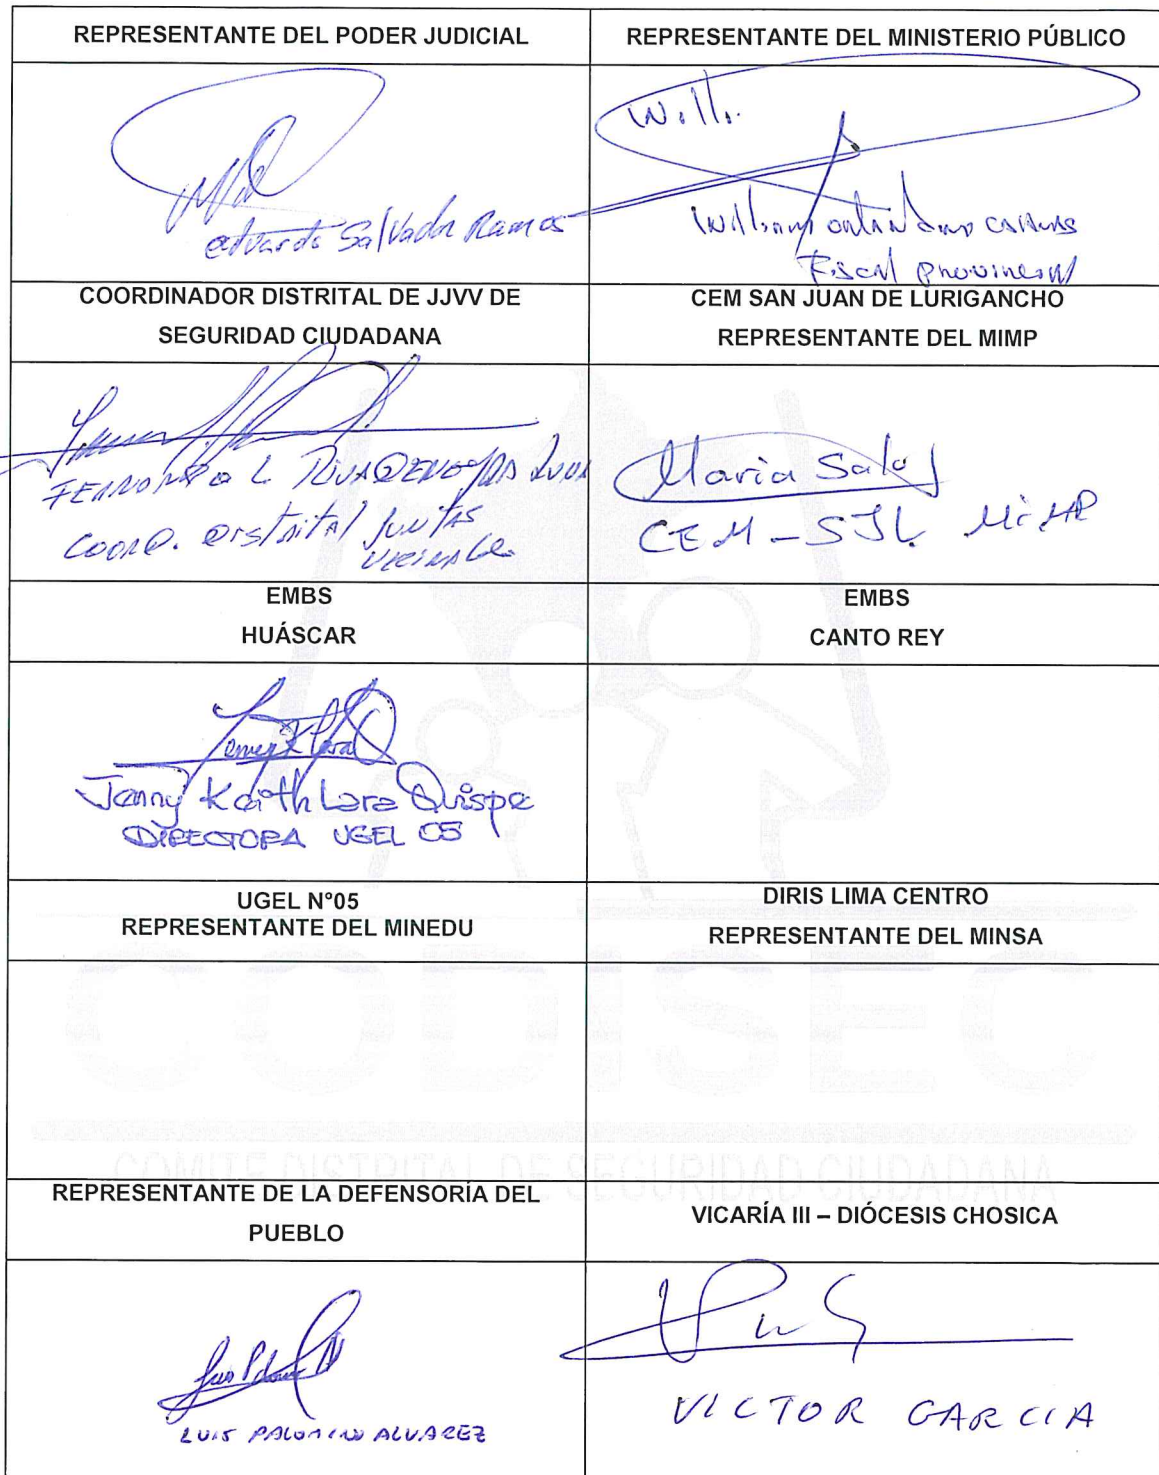 REPRESENTANTE DEL PODER JUDICIAL
REPRESENTANTE DEL MINISTERIO PÚBLICO
Eduardo Salvador Ramos
Willi.
William
Fiscal Provincial
COORDINADOR DISTRITAL DE JJVV DE
SEGURIDAD CIUDADANA
CEM SAN JUAN DE LURIGANCHO
REPRESENTANTE DEL MIMP
FERNANDO L.
COORD. Distrital JUNTAS
VECINALES
Maria Salas
CEM - SJL MiMP
EMBS
HUÁSCAR
EMBS
CANTO REY
Jenny Keith Lara Quispe
DIRECTORA UGEL 05
UGEL Nº05
REPRESENTANTE DEL MINEDU
DIRIS LIMA CENTRO
REPRESENTANTE DEL MINSA
CODISEC
COMITE DISTRITAL DE SEGURIDAD CIUDADANA
REPRESENTANTE DE LA DEFENSORÍA DEL
PUEBLO
VICARÍA III – DIÓCESIS CHOSICA
LUIS PALOMINO ALVAREZ
VICTOR GARCIA